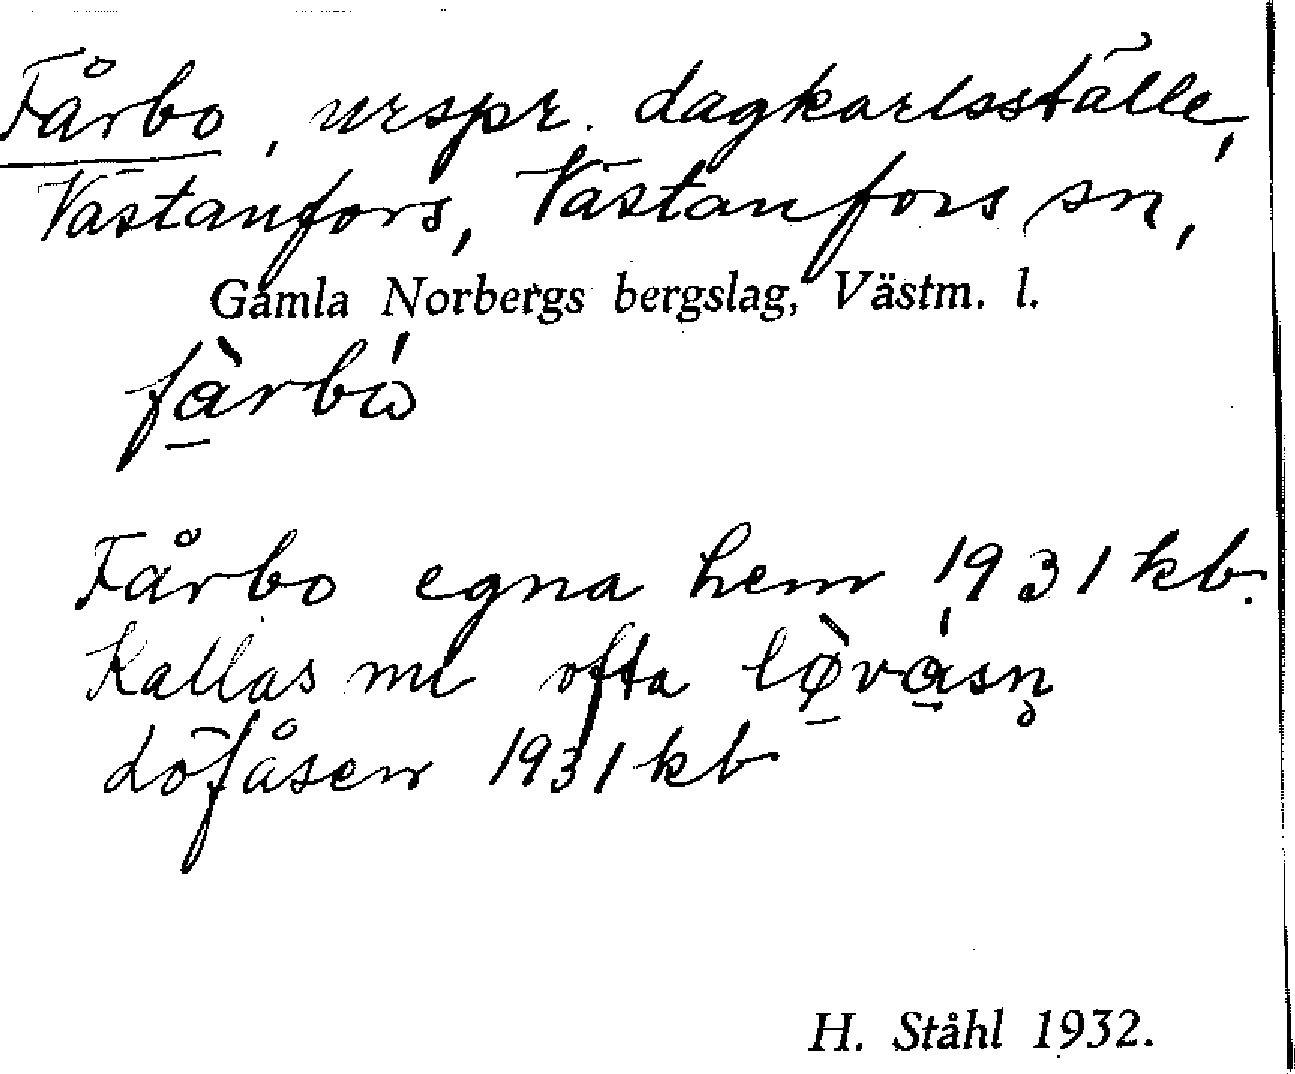 Fårbo, urspr. dagkarlsställe,
Västanfors, Västanfors sn,
Gamla Norbergs bergslag, Västm. l.
Fårbo egna hem 1931 kb.
Kallas nu ofta
Löfåsen 1931 kb
H. Ståhl 1932.